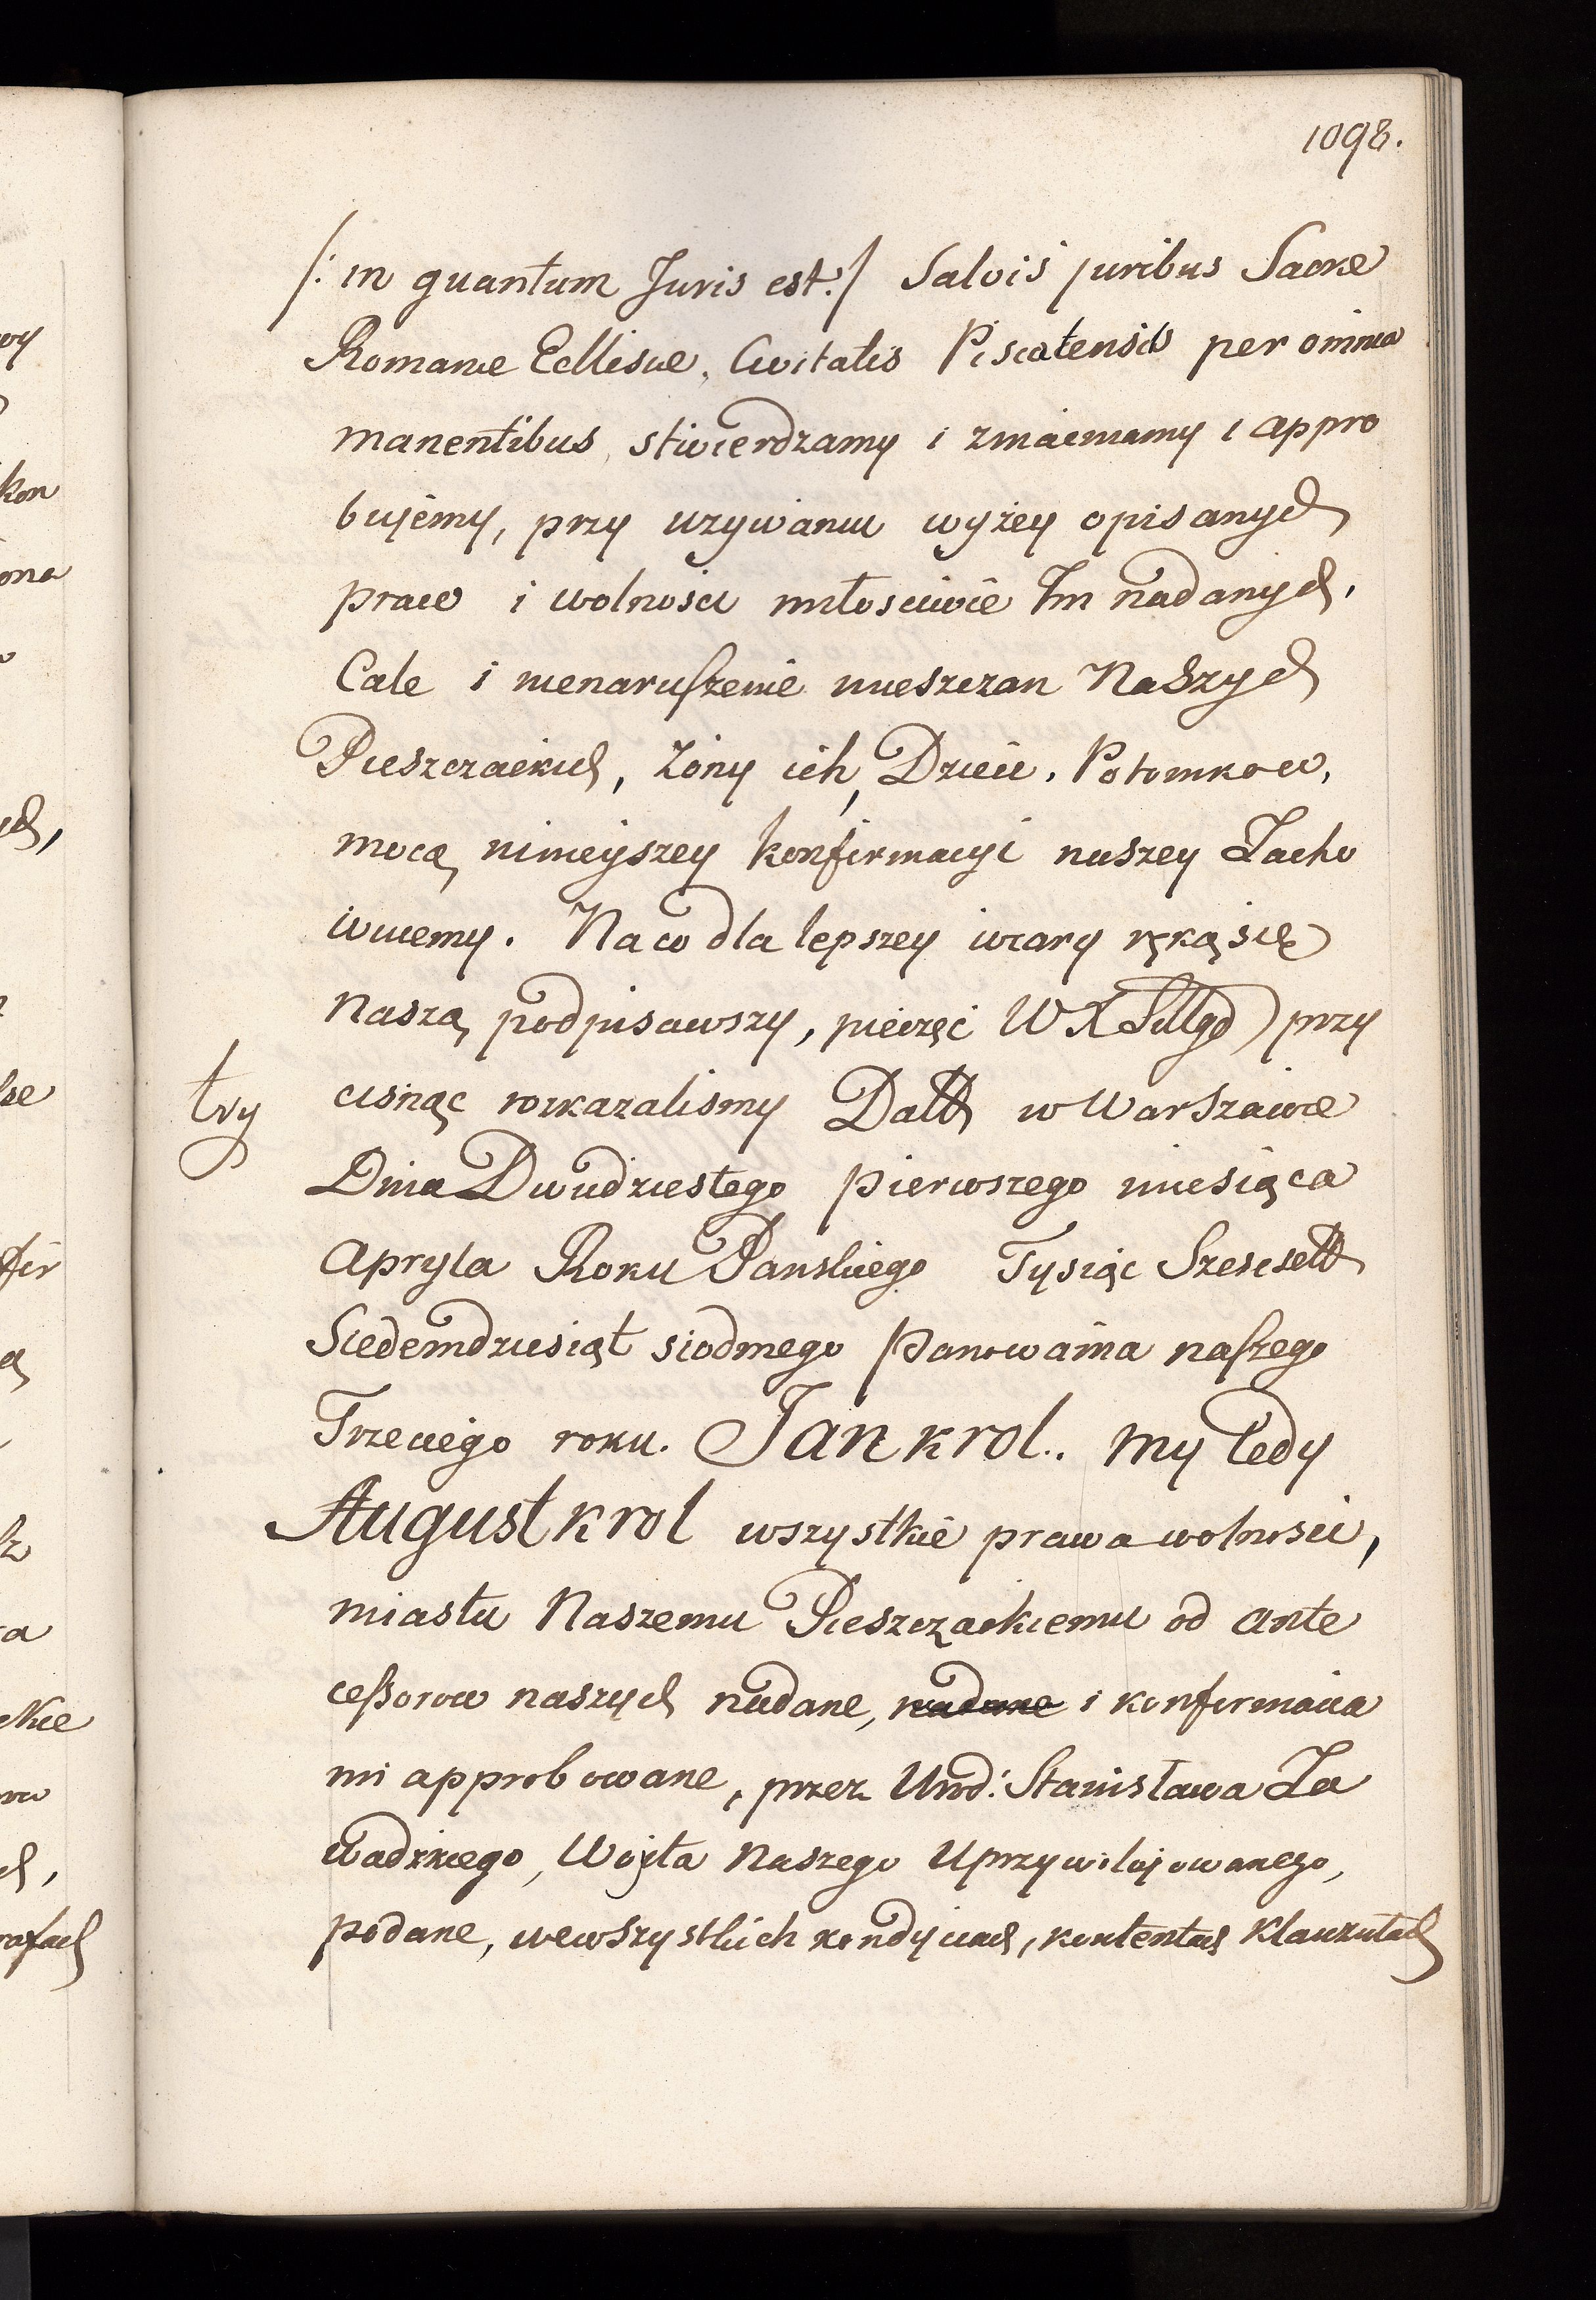 1098.
/: in quantum Juris est :/ Salvis juribus Sacrae
Romanae Ecllisiae, Civitatis Piscatensis per omnia
manentibus, stwierdzamy i zmacniamy i appro
bujemy, przy uzywaniu wyżey opisanych
praw i wolnosci miłosciwie Im nadanych,
Cale i nienaruszenie mieszczan Naszych
Pieszczackich, Żony ich, Dzieci, Potomkow,
mocą ninieyszey konfirmacyi naszey Zacho
wuiemy. Na co dla lepszey wiary ręką się
Naszą podpisawszy, pieczęć W X Littgo przy
try
cisnąc rozkazalismy Datt w Warszawie
Dnia Dwudziestego pierwszego miesiąca
Apryla Roku Panskiego Tysiąc Szescsett
Siedemdziesiąt siodmego Panowania naszego
Trzeciego roku. Jan krol.. My tedy
August krol wszystkie prawa wolnosci,
miastu Naszemu Pieszczackiemu od ante
ceßorow naszych nadane, nadane i konfirmacia
mi approbowane, przez Urod: Stanisława Za
wadzkiego, Woyta Naszego Uprzywilojowanego,
podane, wewszystkich kondyciach, kontentach Klauzulach
wy
kon
ona
ch,
fir
ą
ra
ckie
ch,
rafach